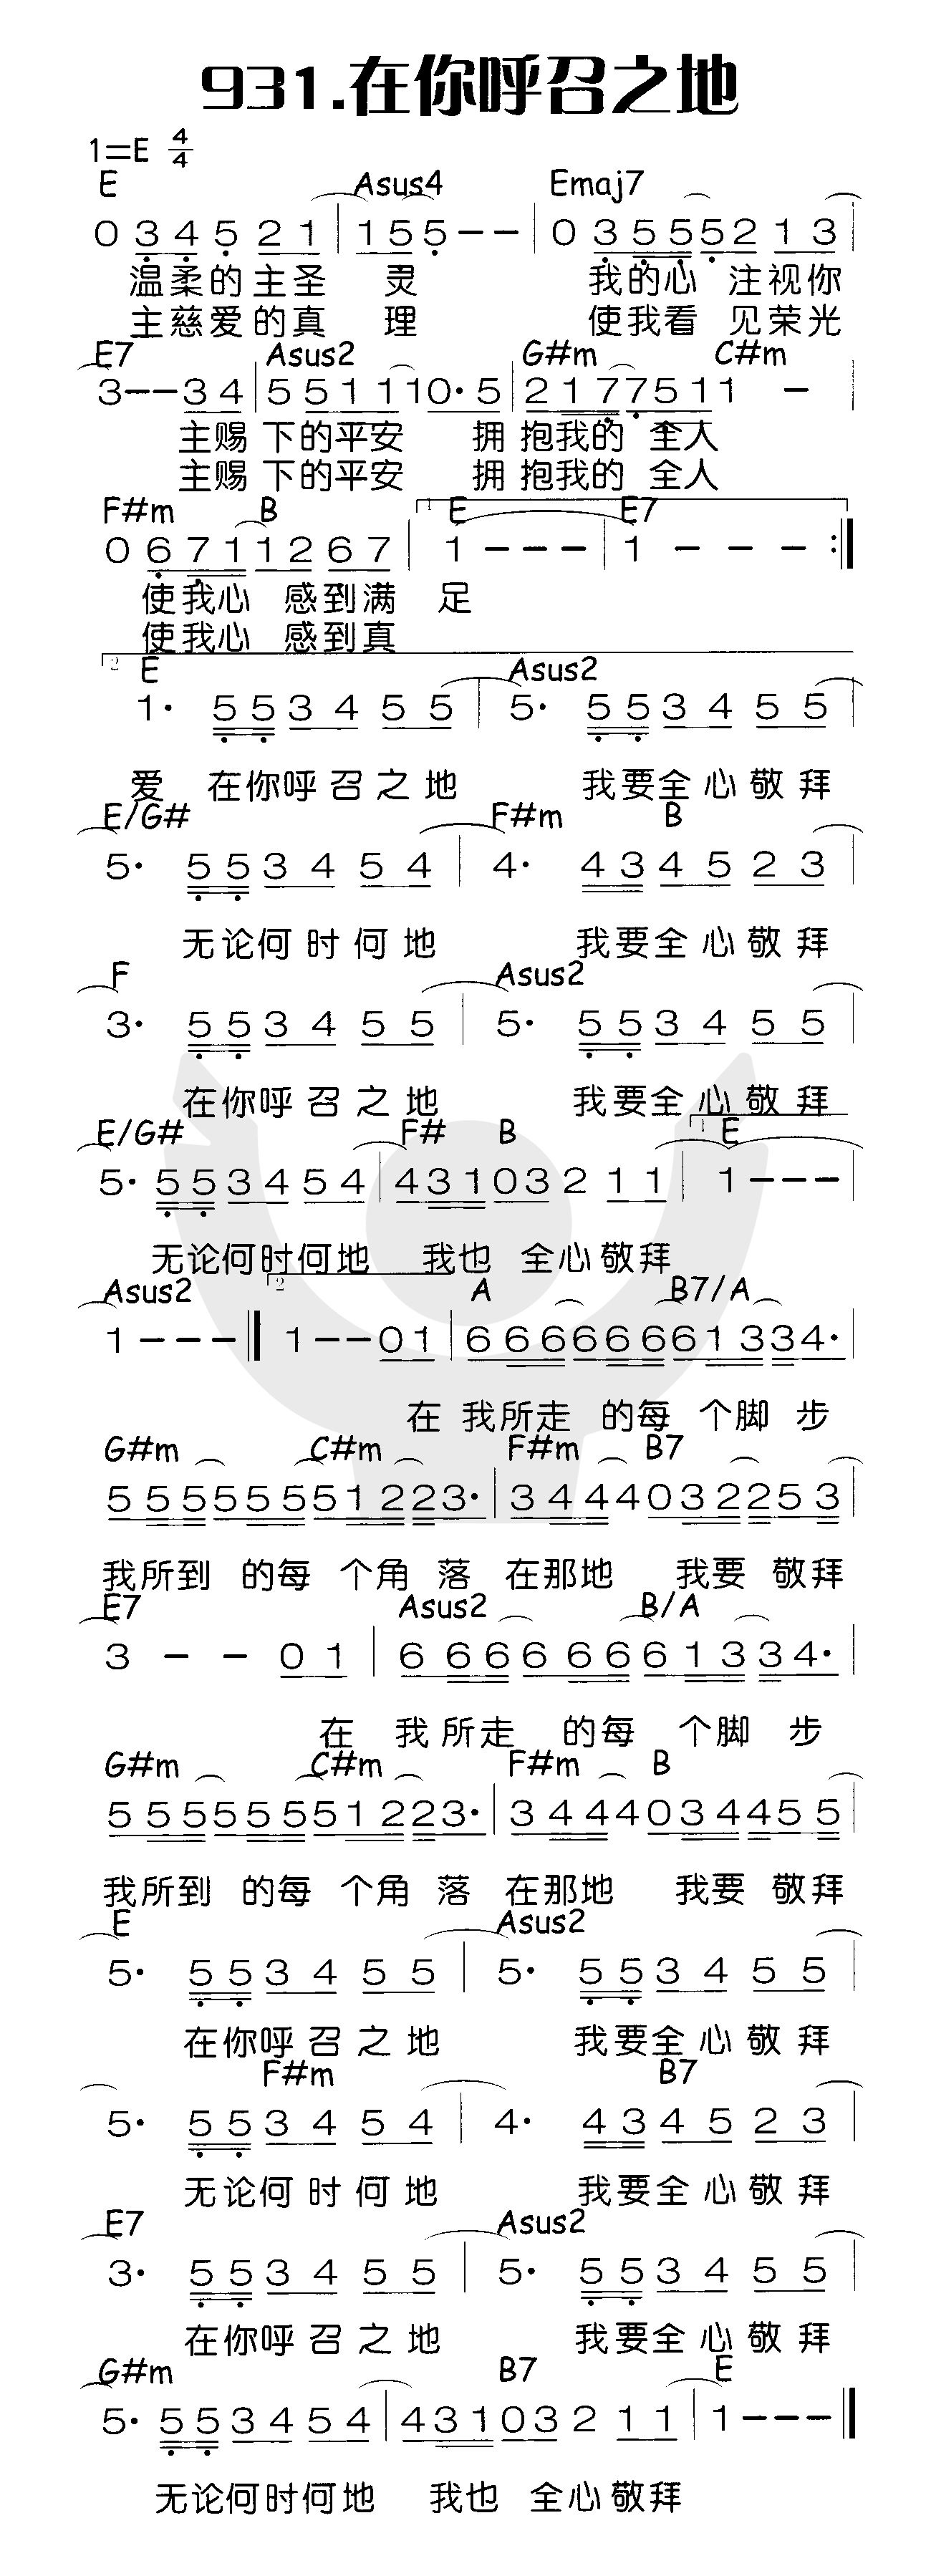 931.在你呼召之地
1=E 4/4
E Asus4 Emaj7
0 3 4 5 2 1 | 1 5 5 - - | 0 3 5 5 5 2 1 3 |
温柔的主圣 灵 我的心 注视你
主慈爱的真 理 使我看 见荣光
E7 Asus2 G#m C#m
3 - - 3 4 | 5 5 1 1 1 0· 5 | 2 1 7 7 5 1 1 - |
主赐 下的平安 拥 抱我的 全人
主赐 下的平安 拥 抱我的 全人
F#m B 1 E E7
0 6 7 1 1 2 6 7 | 1 - - - | 1 - - - :‖
使我心 感到满 足
使我心 感到真
2 E Asus2
1· 5 5 3 4 5 5 | 5· 5 5 3 4 5 5 |
爱 在你呼召之地 我要全心敬拜
E/G# F#m B
5· 5 5 3 4 5 4 | 4· 4 3 4 5 2 3 |
无论何时何地 我要全心敬拜
F Asus2
3· 5 5 3 4 5 5 | 5· 5 5 3 4 5 5 |
在你呼召之地 我要全心敬拜
E/G# F# B 1 E
5· 5 5 3 4 5 4 | 4 3 1 0 3 2 1 1 | 1 - - - |
无论何时何地 我也 全心敬拜
Asus2 2 A B7/A
1 - - - ‖ 1 - - 0 1 | 6 6 6 6 6 6 6 1 3 3 4· |
在 我所走 的每 个脚 步
G#m C#m F#m B7
5 5 5 5 5 5 5 1 2 2 3· | 3 4 4 4 0 3 2 2 5 3 |
我所到 的每 个角 落 在那地 我要 敬拜
E7 Asus2 B/A
3 - - 0 1 | 6 6 6 6 6 6 6 1 3 3 4· |
在 我所走 的每 个脚 步
G#m C#m F#m B
5 5 5 5 5 5 5 1 2 2 3· | 3 4 4 4 0 3 4 4 5 5 |
我所到 的每 个角 落 在那地 我要 敬拜
E Asus2
5· 5 5 3 4 5 5 | 5· 5 5 3 4 5 5 |
在你呼召之地 我要全心敬拜
F#m B7
5· 5 5 3 4 5 4 | 4· 4 3 4 5 2 3 |
无论何时何地 我要全心敬拜
E7 Asus2
3· 5 5 3 4 5 5 | 5· 5 5 3 4 5 5 |
在你呼召之地 我要全心敬拜
G#m B7 E
5· 5 5 3 4 5 4 | 4 3 1 0 3 2 1 1 | 1 - - - ‖
无论何时何地 我也 全心敬拜